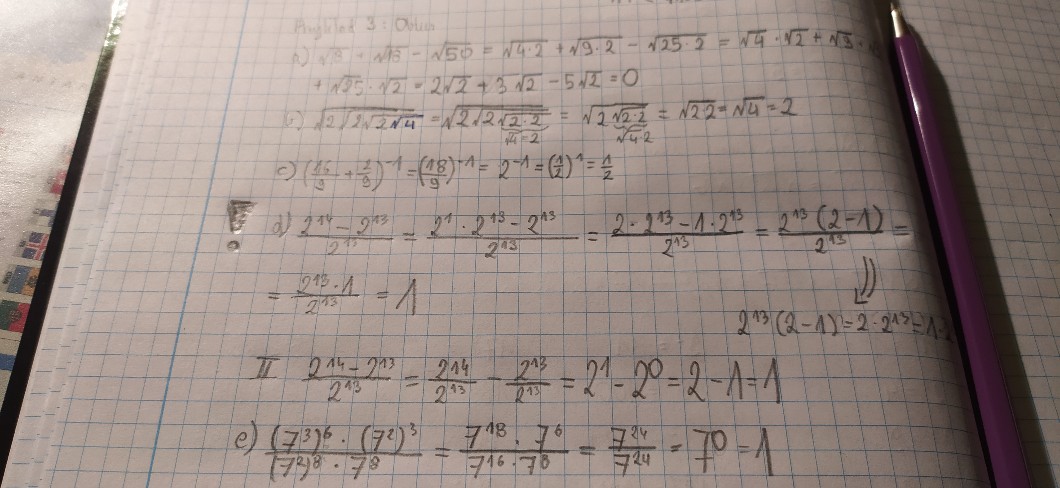 Przykład 3: Oblicz
a) √8 + √18 - √50 = √4·2 + √9·2 - √25·2 = √4 · √2 + √9 ·
+ √25 · √2 = 2√2 + 3√2 - 5√2 = 0
b) √2√2√2√4 = √2√2√2·2 = √2√2·2 = √2·2 = √4 = 2
√4=2 √4·2
c) (16/9 + 2/9)⁻¹ = (18/9)⁻¹ = 2⁻¹ = (1/2)¹ = 1/2
! d) 2¹⁴ - 2¹³/2¹³ = 2¹ · 2¹³ - 2¹³/2¹³ = 2 · 2¹³ - 1 · 2¹³/2¹³ = 2¹³(2-1)/2¹³ =
= 2¹³ · 1/2¹³ = 1
2¹³(2-1) = 2·2¹³ - 1·
II 2¹⁴ - 2¹³/2¹³ = 2¹⁴/2¹³ - 2¹³/2¹³ = 2¹ - 2⁰ = 2 - 1 = 1
e) (7³)⁶ · (7²)³/(7²)⁸ · 7⁸ = 7¹⁸ · 7⁶/7¹⁶ · 7⁸ = 7²⁴/7²⁴ = 7⁰ = 1